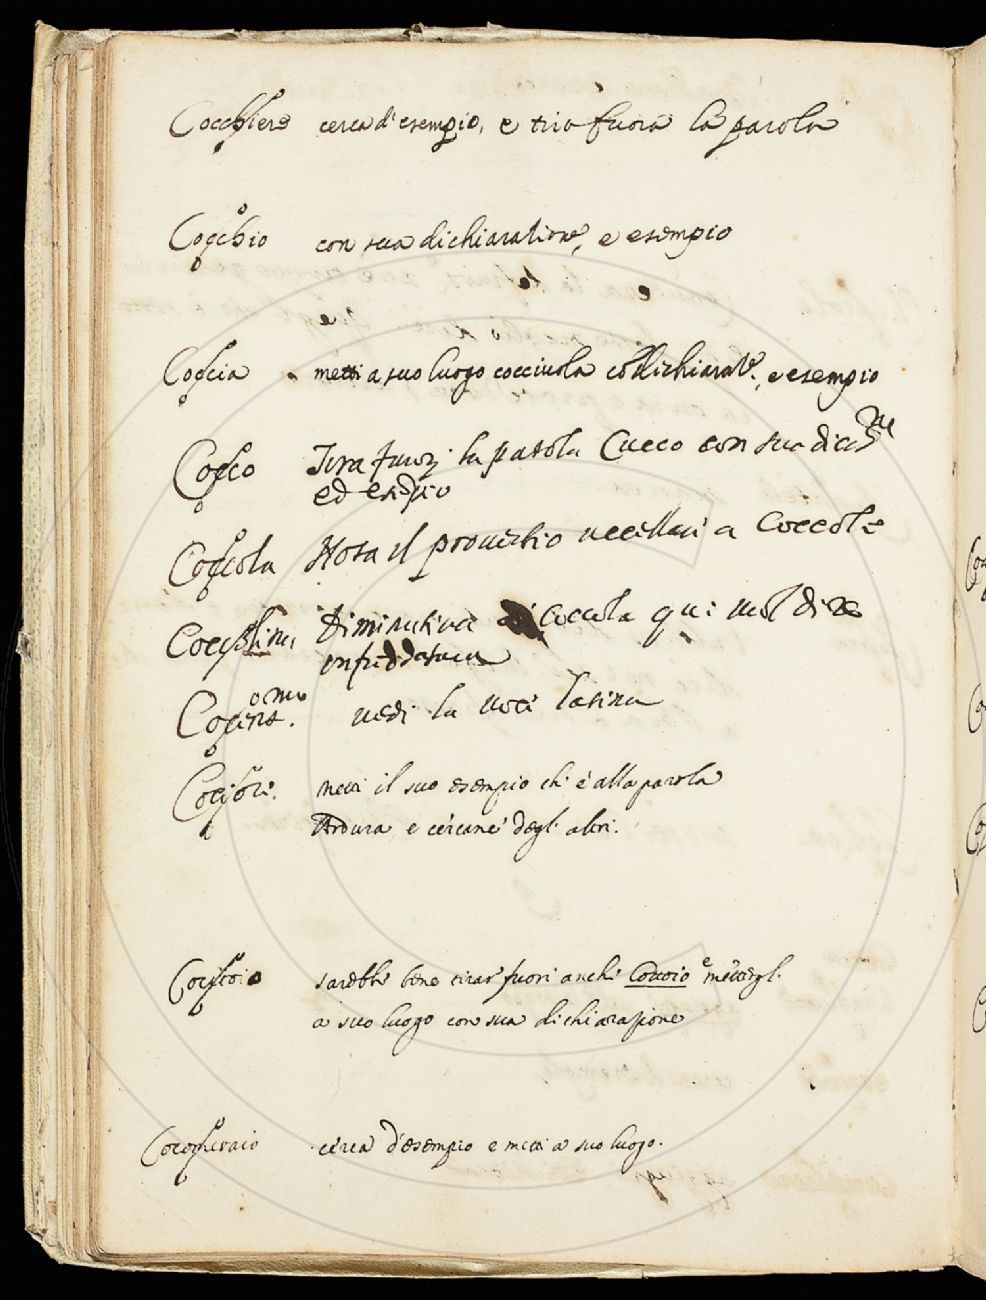 Cocchiere cerca d'esempio, e tira fuora la parola
Cocchio con sua dichiaratione, e esempio
Coccia metti a suo luogo cocciuola coll dichiarat.e, e esempio
Cocco Tira fuori la parola Cucco con sua dich.ne
ed esepio
Coccola Nota il prouerbio uccellari a Coccole
Coccolina Diminutiuo di Coccola qui uol dire
infreddatura
ueді la uoce latina
Cociore. metti il suo esempio ch'è alla parola
Ardura e cercane degl'altri.
Cocitoio sarebbe bene tirar fuori anche Cottoio e mettergl.
a suo luogo con sua dichiarazione
Cocomeraio cerca d'esempio e metti a suo luogo.